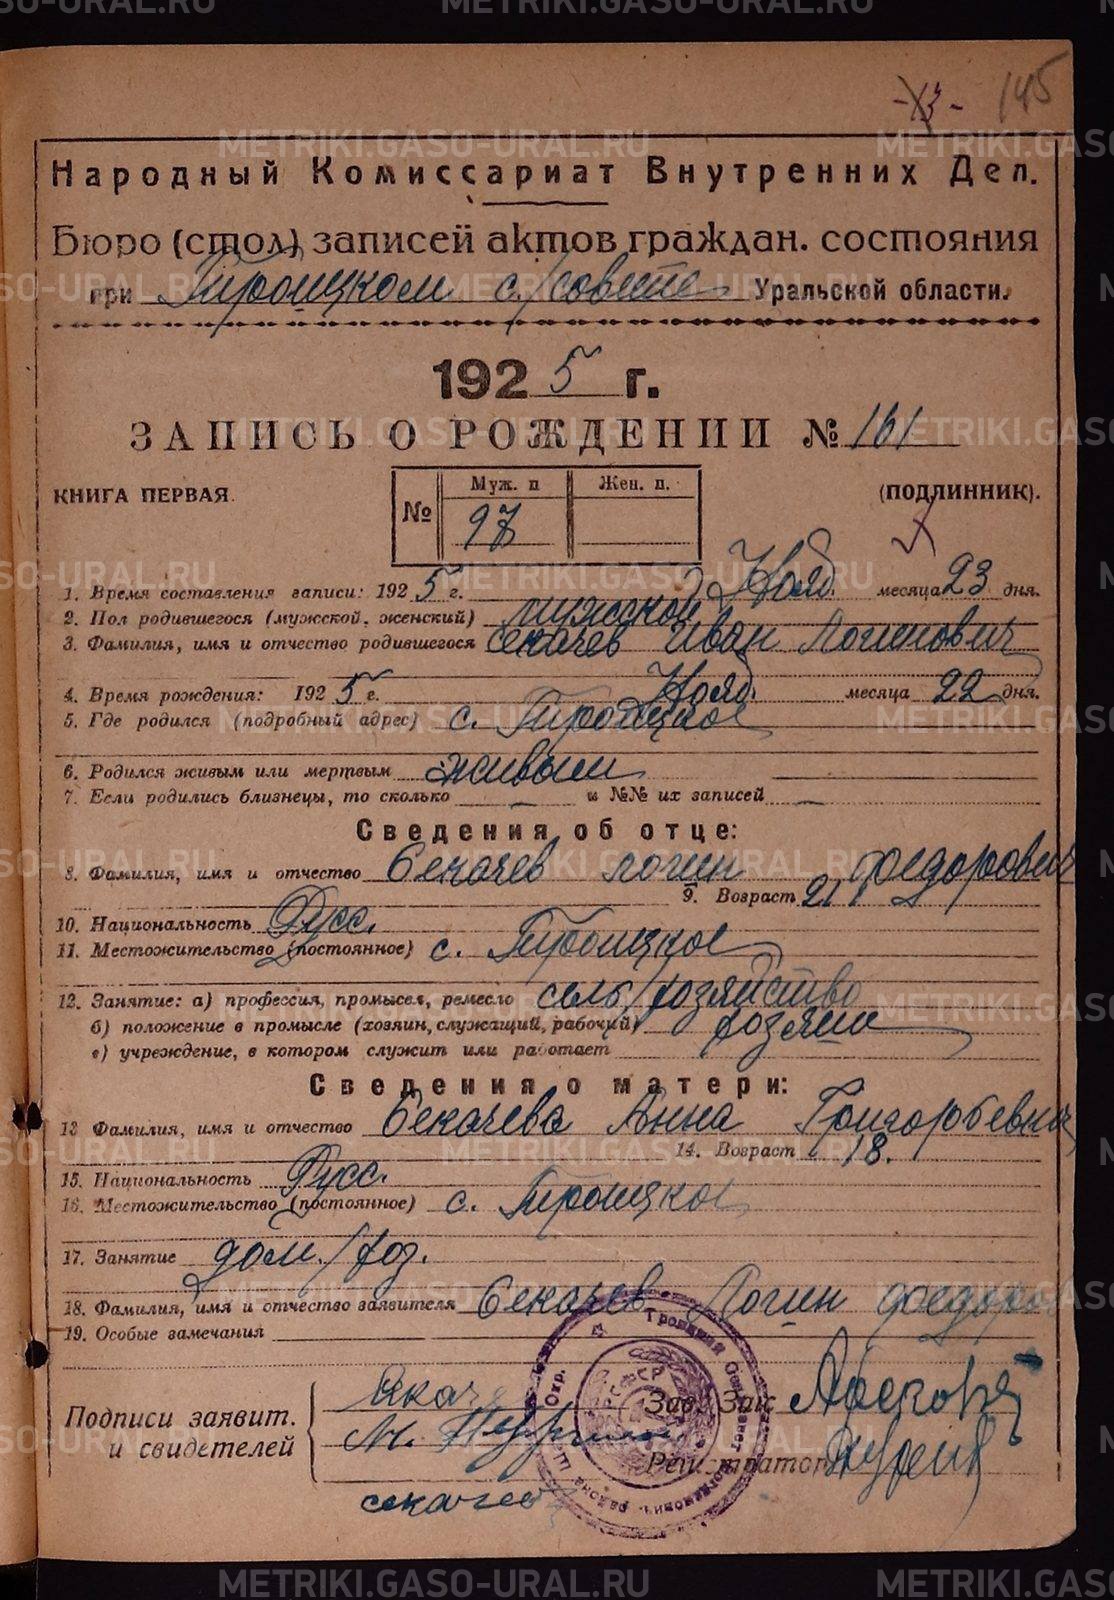 145
Народный Комиссариат Внутренних Дел.
Бюро (стол) записей актов граждан. состояния
при Троицком с/совете Уральской области.
1925 г.
ЗАПИСЬ О РОЖДЕНИИ № 161
КНИГА ПЕРВАЯ. № Муж. п 97 Жен. п. (ПОДЛИННИК).
1. Время составления записи: 1925 г. Нояб. месяца 23 дня.
2. Пол родившегося (мужской, женский) мужской
3. Фамилия, имя и отчество родившегося Секачев Иван Логинович
4. Время рождения: 1925 г. Нояб. месяца 22 дня.
5. Где родился (подробный адрес) с. Троицкое
6. Родился живым или мертвым живым
7. Если родились близнецы, то сколько — и №№ их записей —
Сведения об отце:
8. Фамилия, имя и отчество Секачев Логин Федорович
9. Возраст 21
10. Национальность Русс.
11. Местожительство (постоянное) с. Троицкое
12. Занятие: а) профессия, промысел, ремесло сель/хозяйство
б) положение в промысле (хозяин, служащий, рабочий) хозяин
в) учреждение, в котором служит или работает
Сведения о матери:
13 Фамилия, имя и отчество Секачева Анна Григорьевна
14. Возраст 18.
15. Национальность Русс.
16. Местожительство (постоянное) с. Троицкое
17. Занятие дом./хоз.
18. Фамилия, имя и отчество заявителя Секачев Логин Федоро
19. Особые замечания
Подписи заявит.
и свидетелей
Зав. Заг.
Регистратор
секачев
METRIKI.GASO-URAL.RU